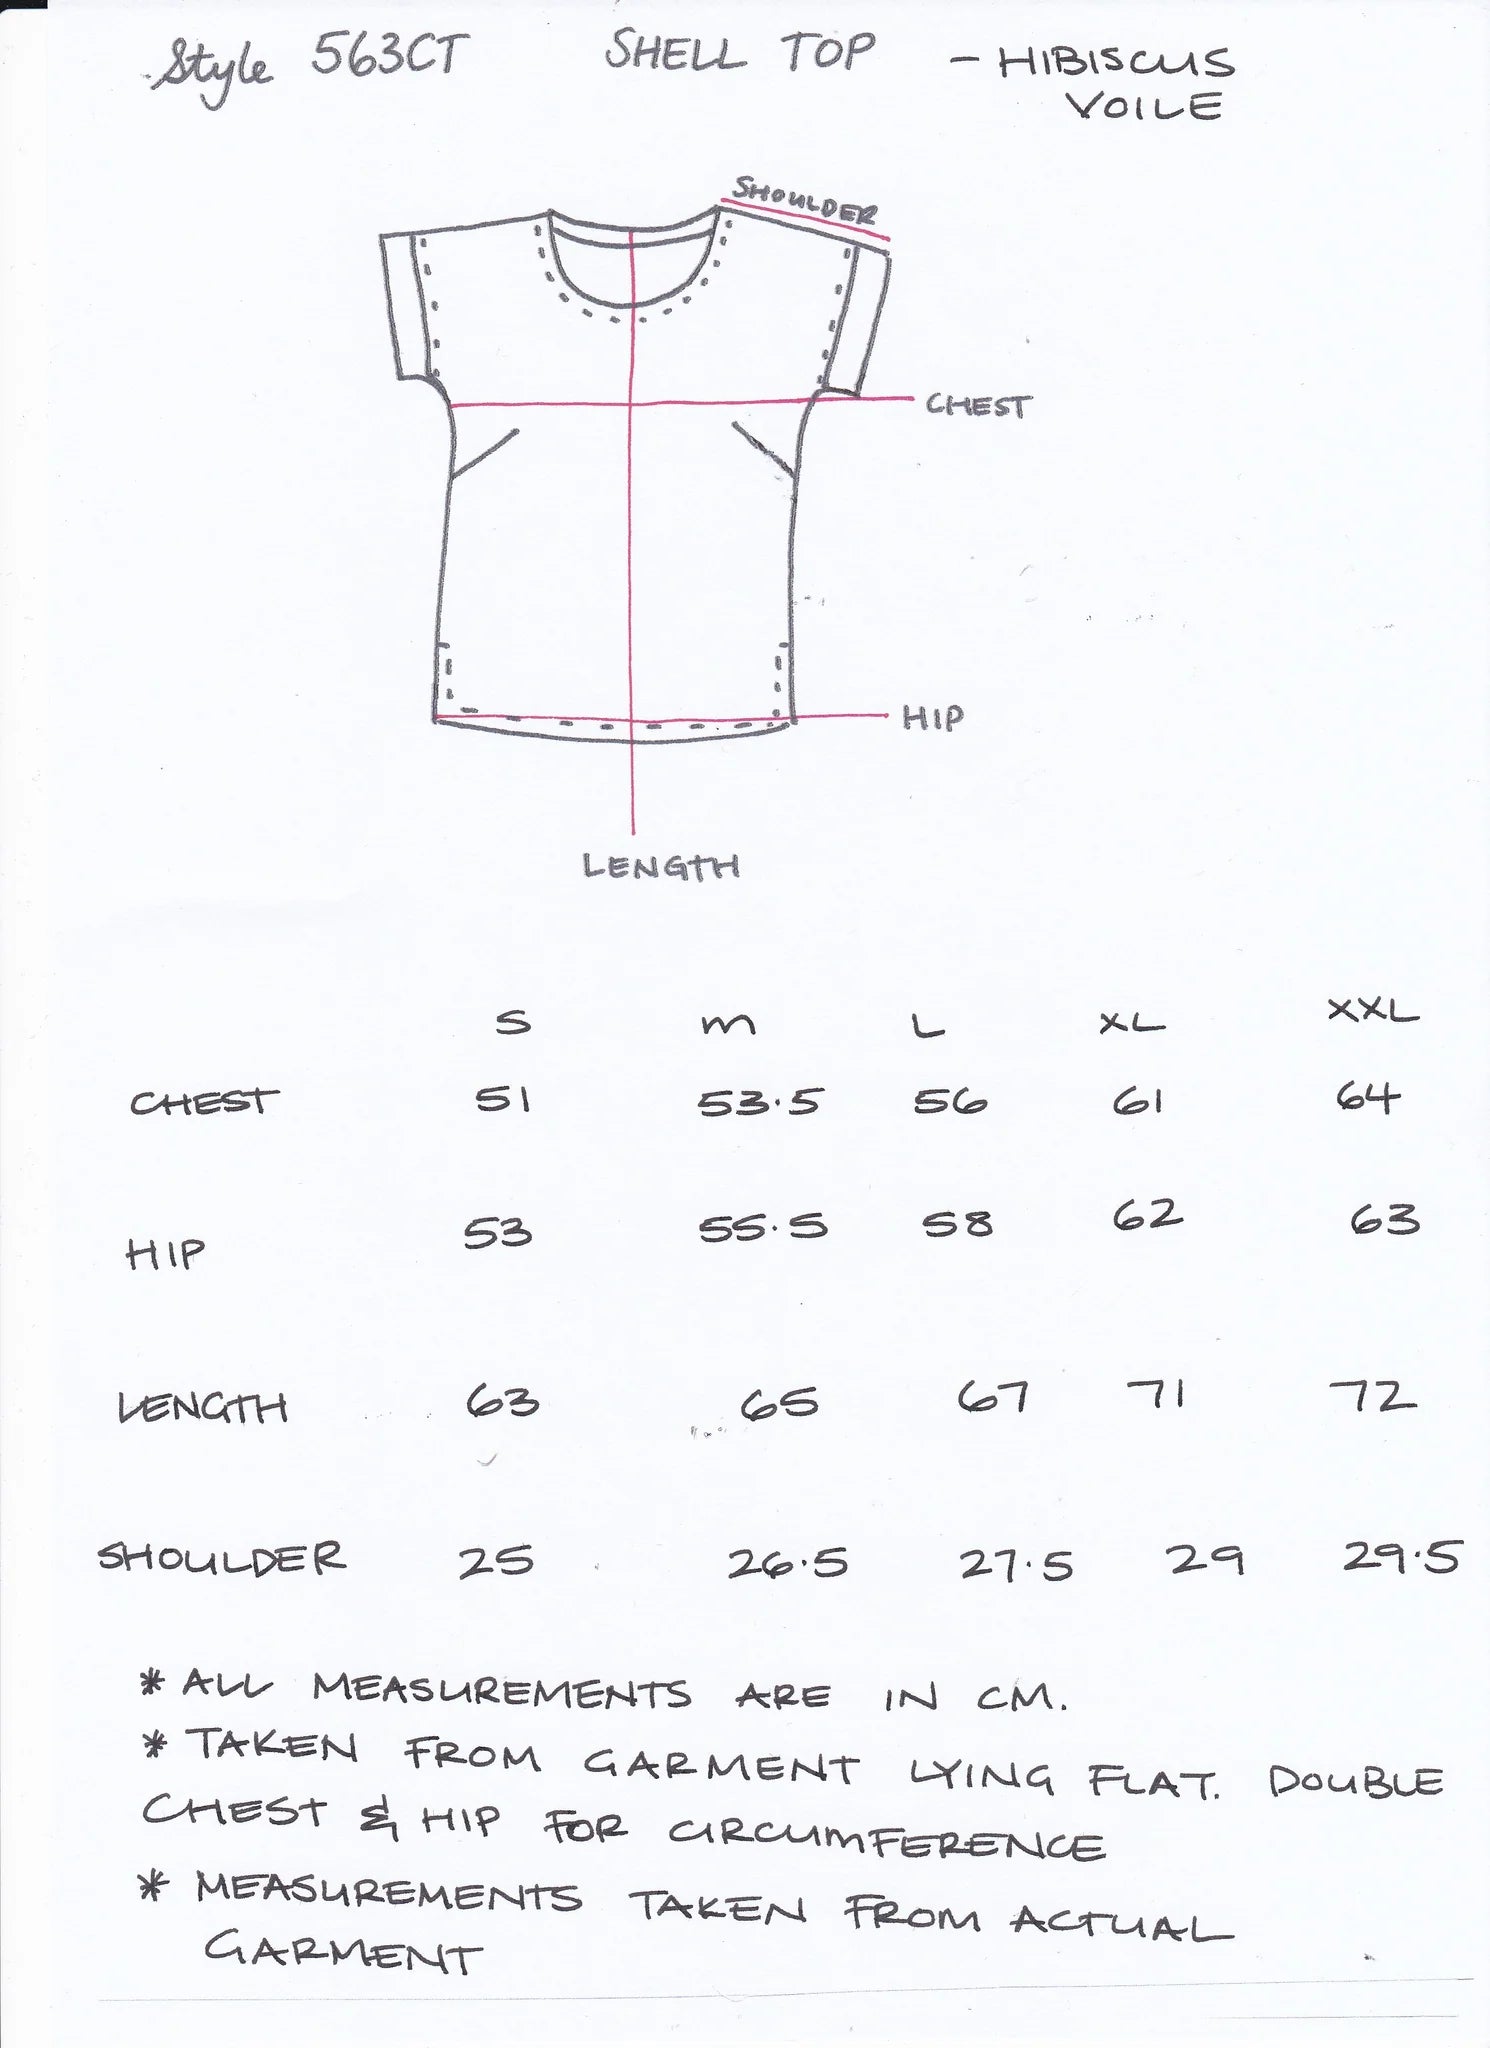 Style 563CT SHELL TOP - HIBISCUS
VOILE
SHOULDER
CHEST
HIP
LENGTH
S m L XL XXL
CHEST 51 53.5 56 61 64
HIP 53 55.5 58 62 63
LENGTH 63 65 67 71 72
SHOULDER 25 26.5 27.5 29 29.5
* ALL MEASUREMENTS ARE IN CM.
* TAKEN FROM GARMENT LYING FLAT. DOUBLE
CHEST & HIP FOR CIRCUMFERENCE
* MEASUREMENTS TAKEN FROM ACTUAL
GARMENT